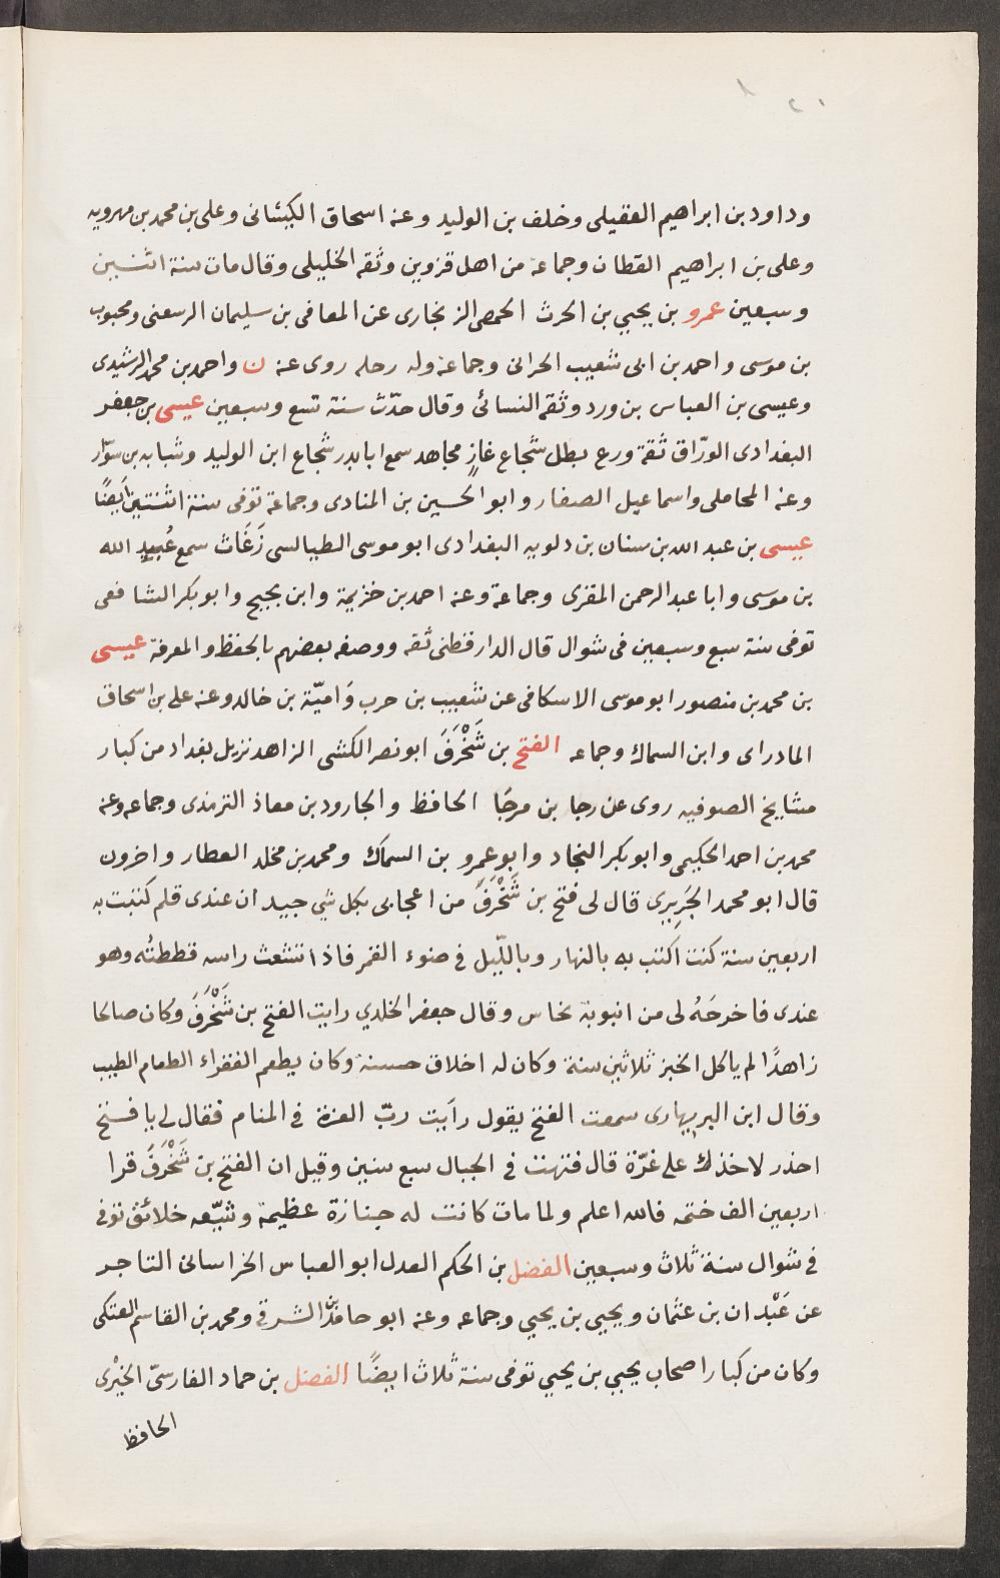 وداود بن ابراهيم العقيلى وخلف بن الوليد وعنه اسحاق الكيسانى وعلى بن محمد بن مهرويه
وعلى بن ابراهيم القطان وجماعة من اهل قزوين وثقه الخليلى وقال مات سنة اثنتين
وسبعين عمرو بن يحيى بن الحرث الحمصى الزنجارى عن المعافى بن سليمان الرسعنى ومحبوب
بن موسى واحمد بن ابى شعيب الحرانى وجماعة وله رحله روى عنه ن واحمد بن محمد الرشيدى
وعيسى بن العباس بن ورد وثقه النسائى وقال حدّث سنة تسع وسبعين عيسى بن جعفر
البغدادى الورّاق ثقة ورع بطل شجاع غازٍ مجاهد سمع ابا بدر شجاع ابن الوليد وشبابه بن سوّار
وعنه المحاملى واسماعيل الصفار وابو الحسين بن المنادى وجماعة توفى سنة اثنتين ايضًا
عيسى بن عبد الله بن سنان بن دلويه البغدادى ابو موسى الطيالسى زَغَاث سمع عُبيد الله
بن موسى وابا عبد الرحمن المقرى وجماعة وعنه احمد بن خزيمة وابن نجيح وابو بكر الشافعى
توفى سنة سبع وسبعين فى شوال قال الدارقطنى ثقه ووصفه بعضهم بالحفظ والمعرفة عيسى
بن محمد بن منصور ابو موسى الاسكافى عن شعيب بن حرب وَاميّة بن خالد وعنه على بن اسحاق
المادراى وابن السماك وجماعه الفتح بن شَخْرَفَ ابو نصر الكشى الزاهد نزيل بغداد من كبار
مشايخ الصوفيه روى عن رجا بن مرجّا الحافظ والجارود بن معاذ الترمذى وجماعه وعنه
محمد بن احمد الحكيمى وابو بكر النجاد وابو عمرو بن السماك ومحمد بن مخلد العطار واخرون
قال ابو محمد الجَرِيرى قال لى فتح بن شَخْرَفَ من اعجابى بكل شي جيد ان عندى قلم كتبت به
اربعين سنة كنت اكتب به بالنهار وبالليّل فى ضوء القمر فاذا تشعث راسه قططتُه وهو
عندى فاخرجَهُ لى من انبوبة نحاس وقال جعفر الخلدي رايت الفتح بن شَخْرَفَ وكان صالحا
زاهدًا لم ياكل الخبز ثلاثين سنة وكان له اخلاق حسنة وكان يطعم الفقراء الطعام الطيب
وقال ابن البربهارى سمعت الفتح يقول راَيت ربّ العزة فى المنام فقال لى يا فتح
احذر لاخذك على غرّة قال فتهت فى الجبال سبع سنين وقيل ان الفتح بن شَخْرَفَ قرا
اربعين الف ختمه فالله اعلم ولما مات كانت له جنازة عظيمة وشيّعه خلائق توفى
فى شوال سنة ثلاث وسبعين الفضل بن الحكم العدل ابو العباس الخراسانى التاجر
عن عَبْدان بن عثمان ويحيى بن يحيى وجماعه وعنه ابو حامد بن الشرقى ومحمد بن القاسم العتكى
وكان من كبار اصحاب يحيى بن يحيى توفى سنة ثلاث ايضًا الفضل بن حماد الفارسىّ الخبْرى
الحافظ